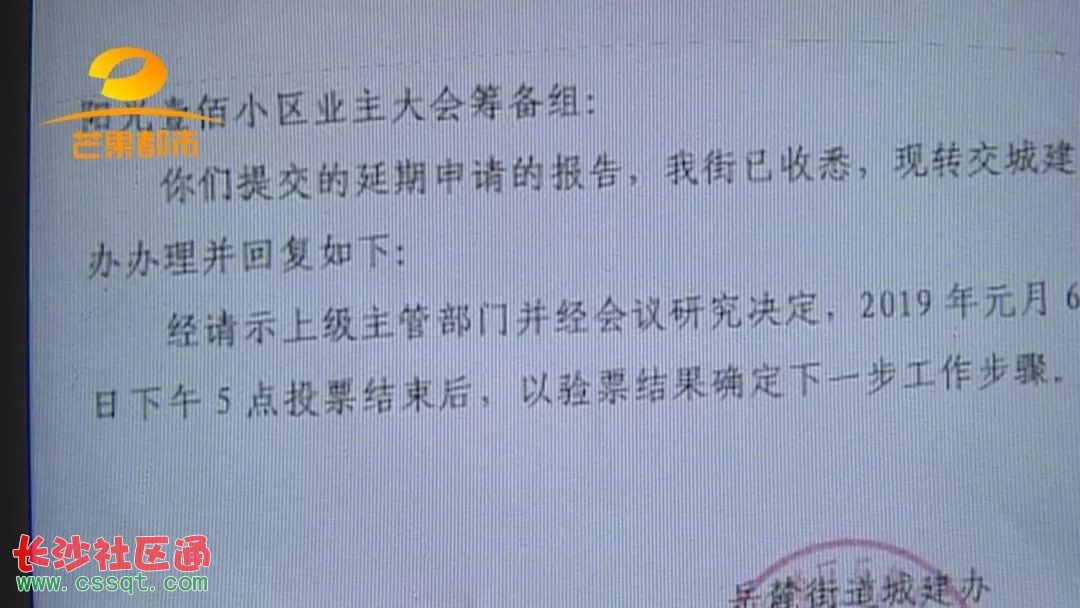 阳光壹佰小区业主大会筹备组：
芒果都市
你们提交的延期申请的报告，我街已收悉，现转交城建
办办理并回复如下：
经请示上级主管部门并经会议研究决定，2019年元月6
日下午5点投票结束后，以验票结果确定下一步工作步骤。
长沙社区通
www.cssqt.com
岳麓街道城建办